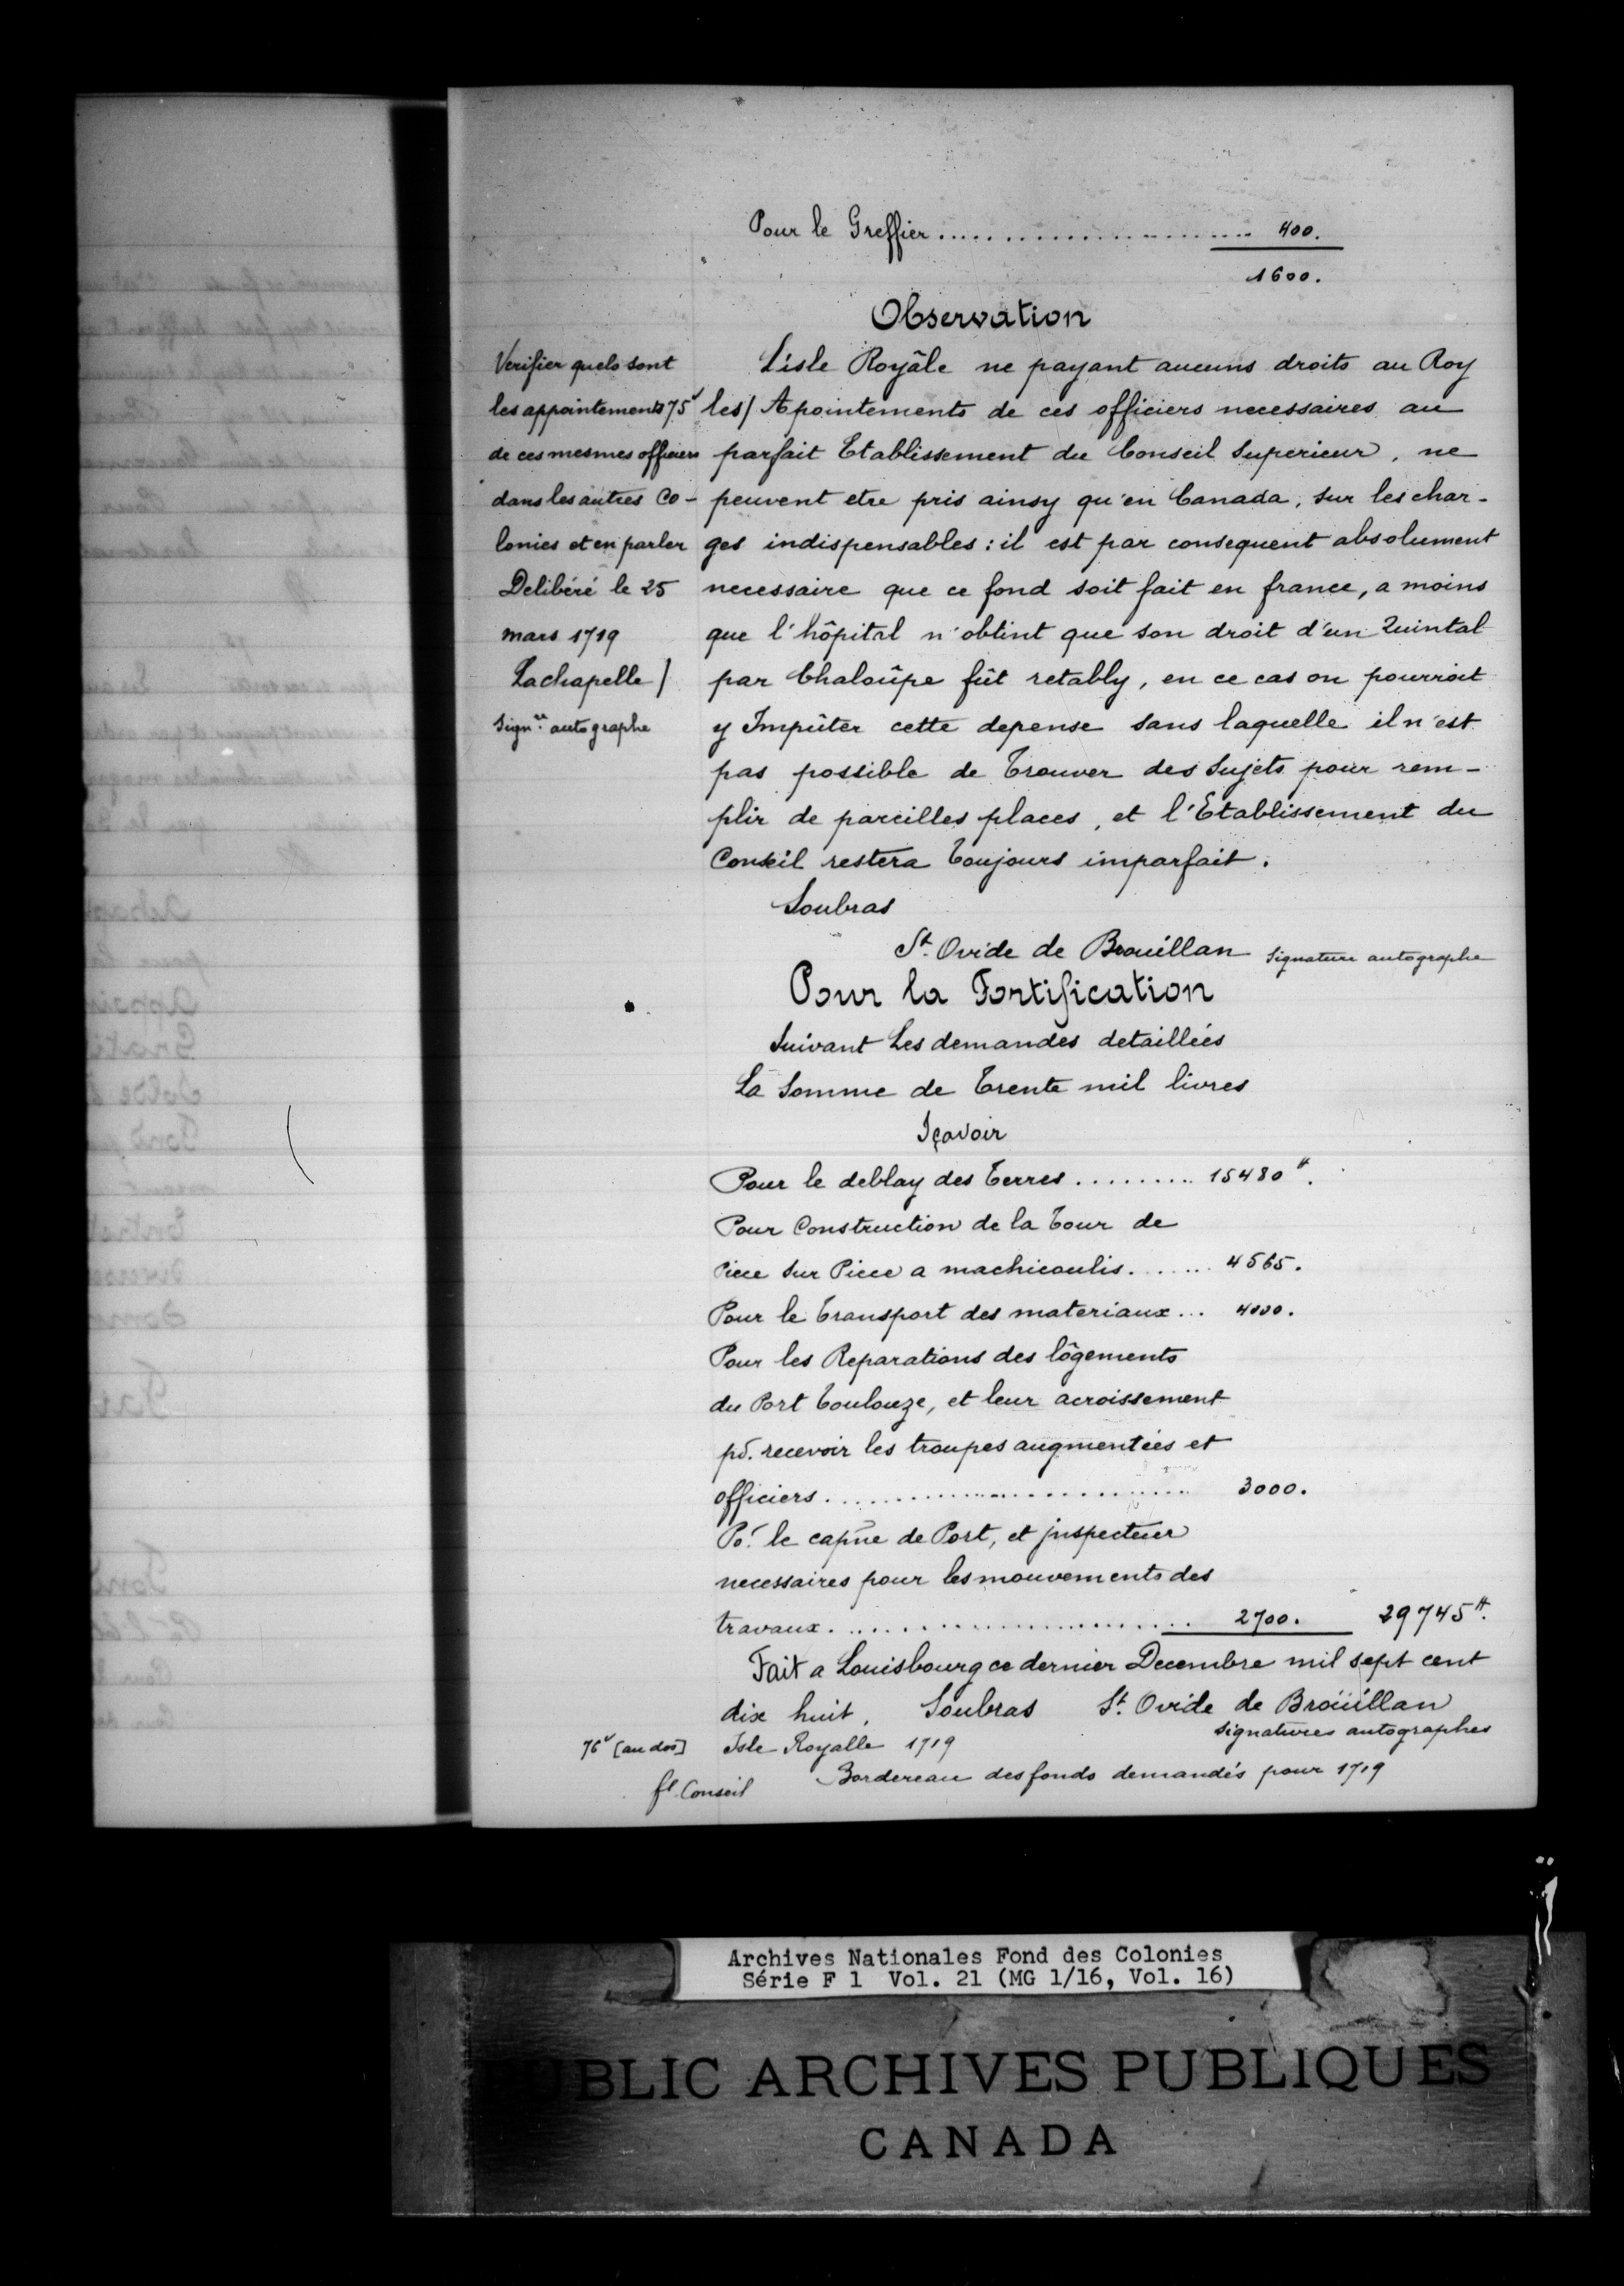 Pour le Greffier .......................... 400.
1600.
Observation
Verifier quels sont
les appointements
de ces mesmes officiers
dans les autres Co-
lonies et en parler
Delibéré le 25
mars 1719
Lachapelle /
Sign.re autographe
L'isle Royâle ne payant aucuns droits au Roy
75v les/ Apointements de ces officiers necessaires au
parfait Etablissement du Conseil Superieur, ne
peuvent etre pris ainsy qu'en Canada, sur les char-
ges indispensables: il est par consequent absolument
necessaire que ce fond soit fait en france, a moins
que l'hôpital n'obtint que son droit d'un Quintal
par Chaloûpe fût retably, en ce cas on pourroit
y Impûter cette depense sans laquelle il n'est
pas possible de Trouver des Sujets pour rem-
plir de pareilles places, et l'Etablissement du
Conseil restera Toujours imparfait.
Soubras
St. Ovide de Brouillan signature autographe
Pour la Fortification
Suivant Les demandes detaillées
La Somme de Trente mil livres
Sçavoir
Pour le deblay des Terres ......... 15480tt.
Pour Construction de la Tour de
Piece sur Piece a machicoulis ....... 4565.
Pour le Transport des materiaux ... 4000.
Pour les Reparations des lôgements
du Port Toulouze, et leur acroissement
pō. recevoir les troupes augmentées et
officiers ............................ 3000.
Po.r le capne de Port, et jnspecteur
necessaires pour les mouvements des
travaux ........................... 2700. 29745tt.
Fait a Louisbourg ce dernier Decembre mil sept cent
dix huit, Soubras St. Ovide de Broüillan
signatures autographes
76v [au dos] Isle Royalle 1719
Bordereau des fonds demandés pour 1719
fl. Conseil
Archives Nationales Fond des Colonies
Série F 1 Vol. 21 (MG 1/16, Vol. 16)
PUBLIC ARCHIVES PUBLIQUES
CANADA